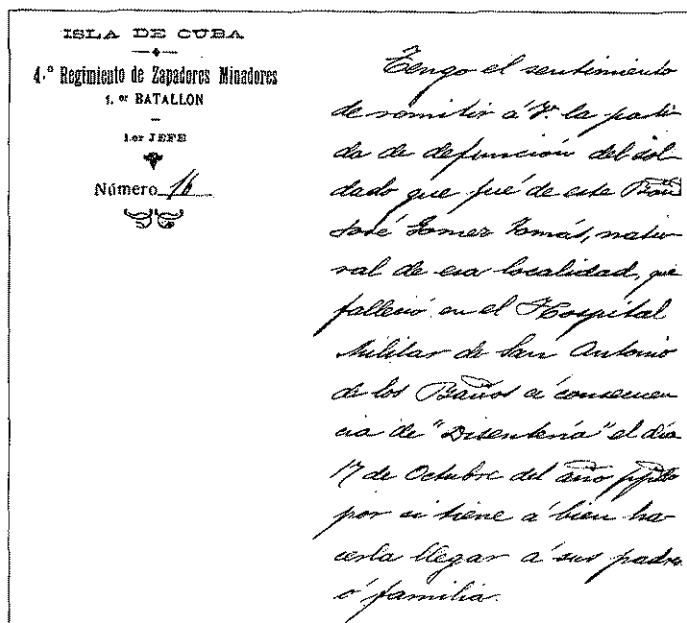 ISLA DE CUBA
4.º Regimiento de Zapadores Minadores
1.er BATALLON
1.er JEFE
Número 16
Tengo el sentimiento
de remitir á V. la parti
da de defunción del sol
dado que fué de este Bon
José Gomez Tomás, natu
ral de esa localidad, que
falleció en el Hospital
Militar de San Antonio
de los Baños á consecuen
cia de "Disentería" el dia
17 de Octubre del año ppdo
por si tiene á bien ha
cerla llegar á sus padres
ó familia.